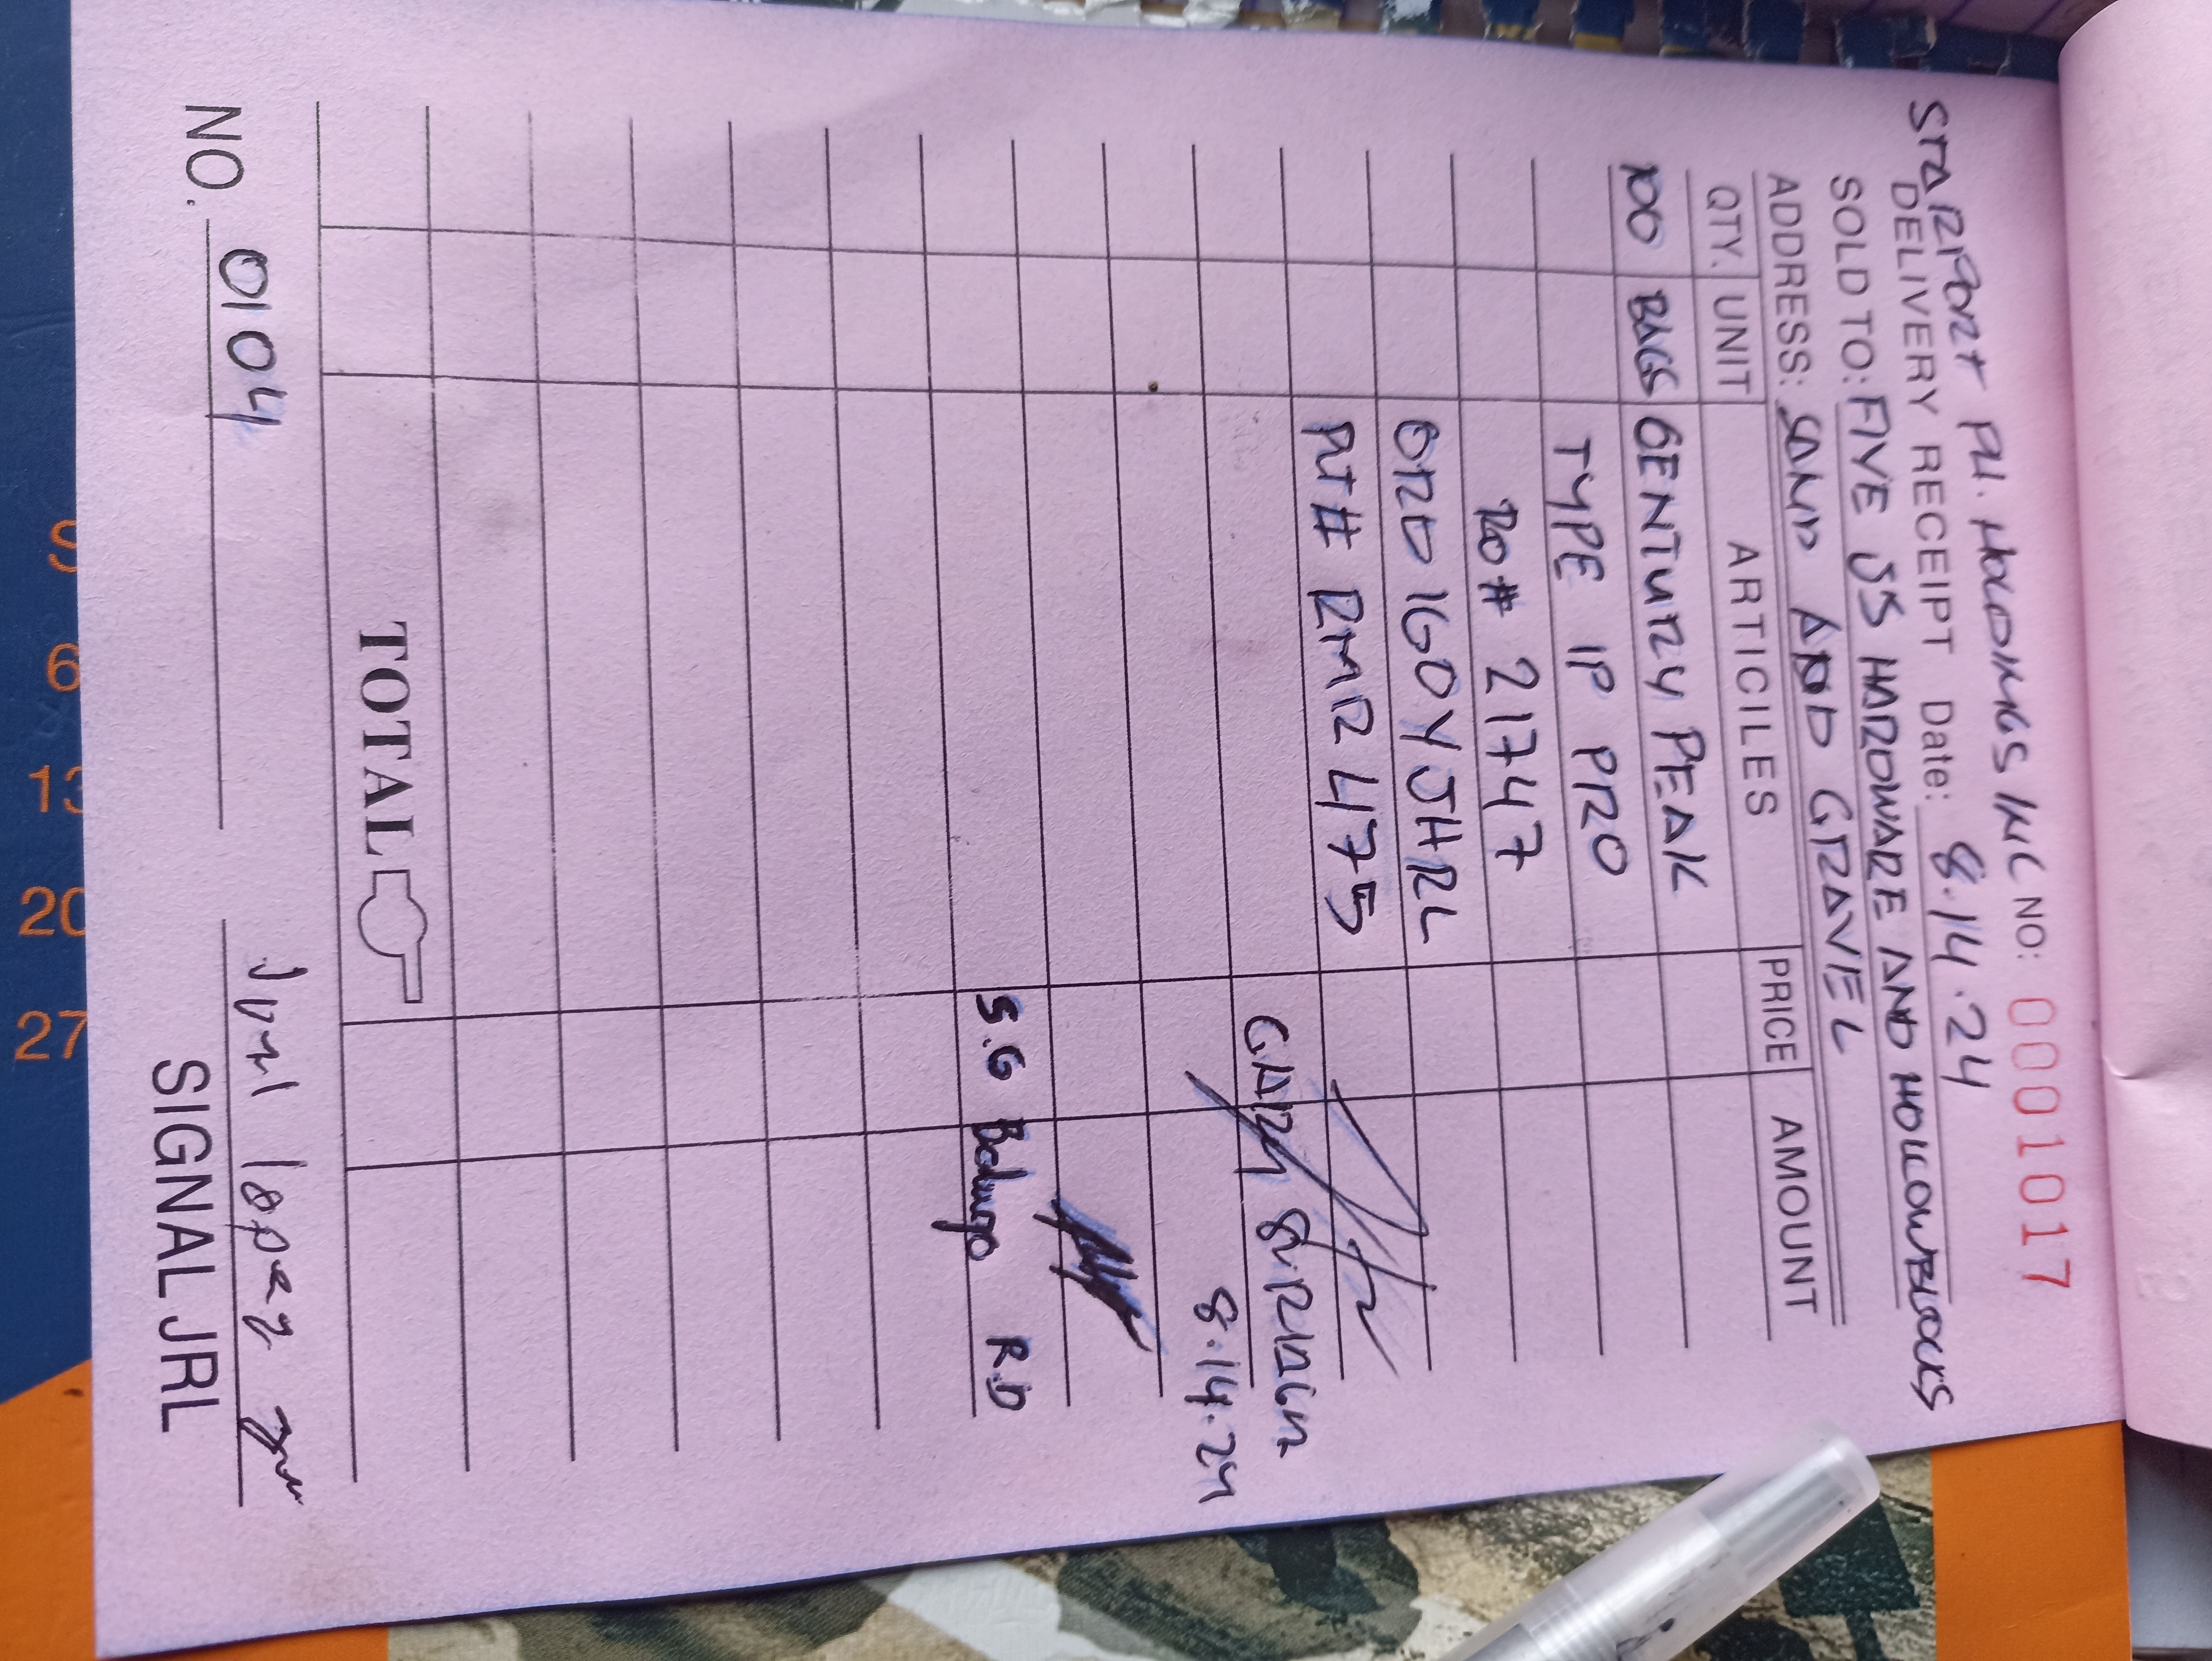 STARPORT PH. HOLDINGS INC NO: 0001017
DELIVERY RECEIPT Date: 8.14.24
SOLD TO: FIVE JS HARDWARE AND HOLLOWBLOCKS
ADDRESS: SAND AND GRAVEL
QTY. UNIT ARTICILES PRICE AMOUNT
100 BAGS CENTURY PEAK
TYPE IP PRO
PO# 21747
ORD 16OYJHRL
PLT# RMR 475
GARY
8.14.24
S.G R.D
TOTAL
NO. 0104 Jyml lopez
SIGNAL JRL
S
6
13
20
27